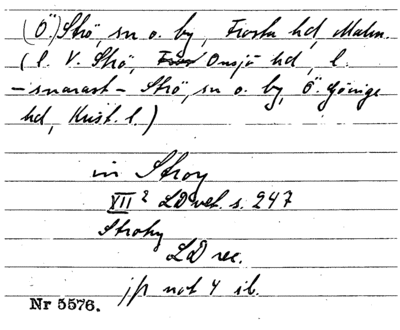 (Ö.) Strö, sn o. by, Frosta hd, Malm.
(l. V. Strö, Onsjö hd, l.
- snarast - Strö, sn o. by, Ö. Göinge
hd, Krist. l.)
in Stroy
VII 2 LD vet. s. 247
Strohy
LD rec.
jfr not 4 ib.
Nr 5576.